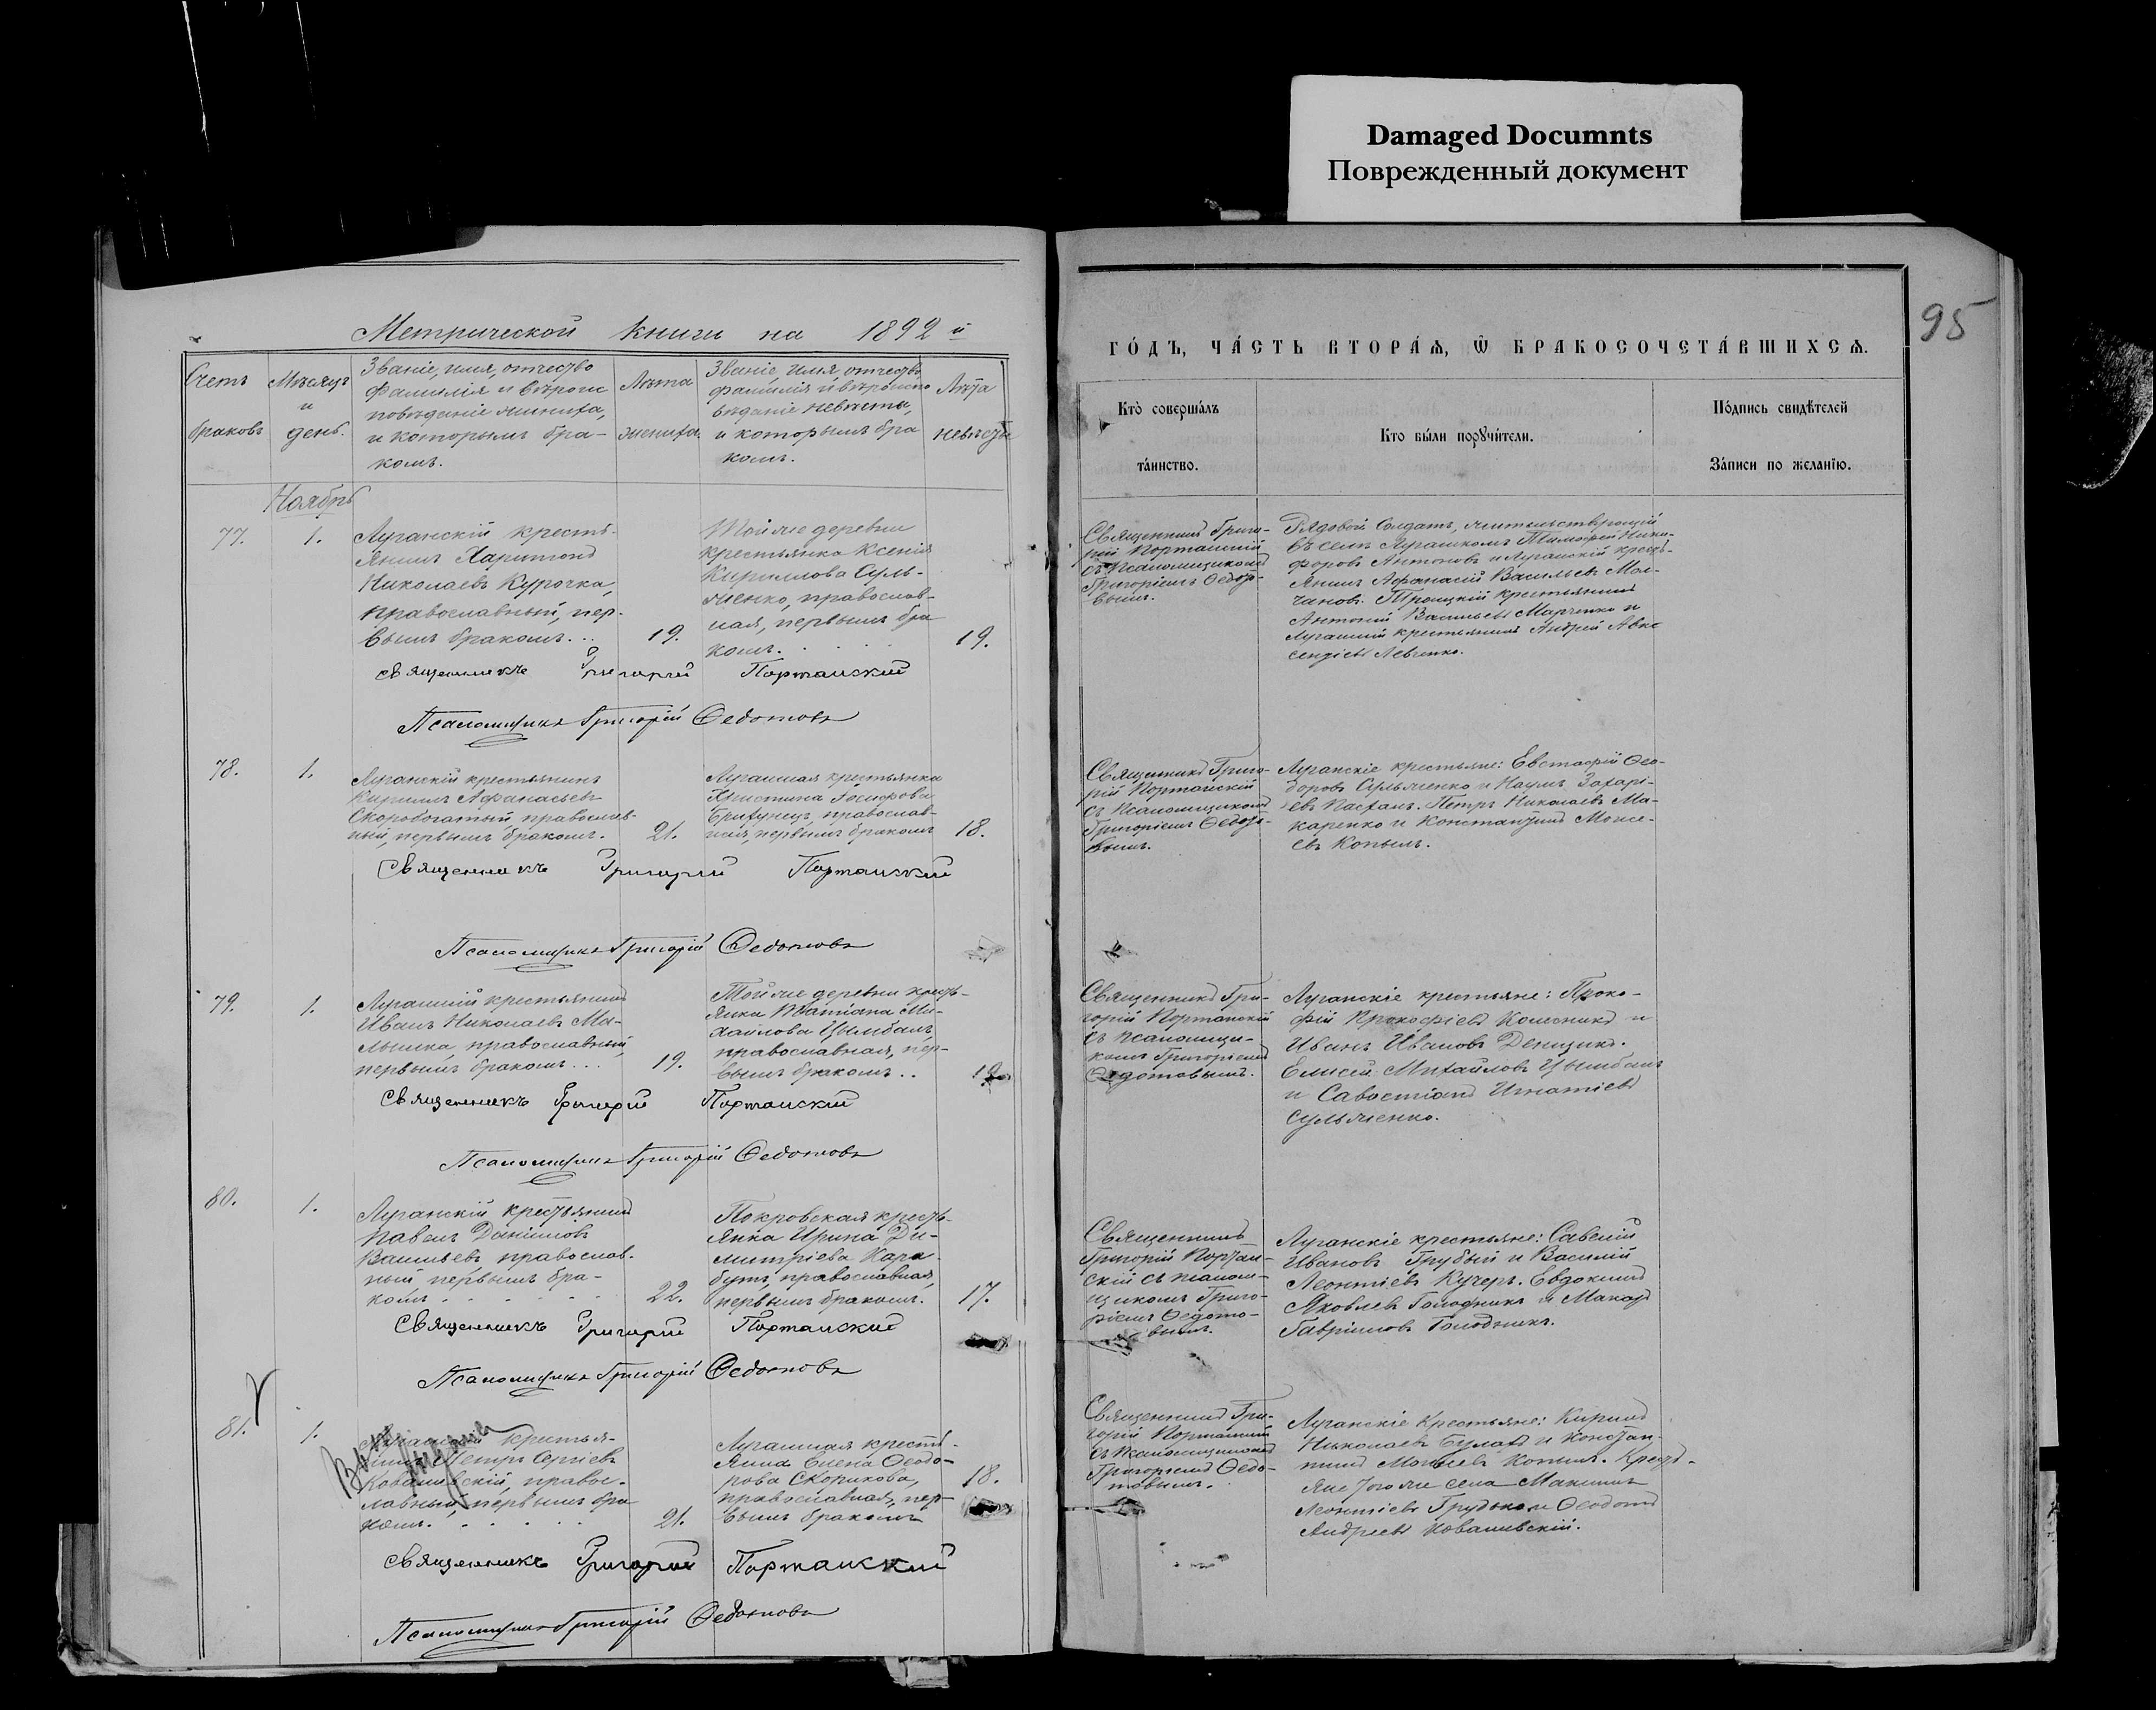 Damaged Documnts
Поврежденный документ
Метрической книги на 1892 й
95
ГО́ДЪ, ЧА́СТЬ ВТОРА́Ѧ, Ѿ БРАКОСОЧЕТА́ВШИХСѦ.
Счетъ
браковъ
Мѣсяцъ
и
день.
Званіе, имя, отчество
фамилія и вѣроис
повѣданіе жениха,
и которымъ бра-
комъ.
Лѣта
жениха.
Званіе, имя, отчество,
фамилія и вѣроиспо
вѣданіе невѣсты,
и которымъ бра
комъ.
Лѣта
невѣсты
Кто̀ соверша́лъ
та́инство.
Кто бы́ли порꙋчи́тели.
По́дпись свидѣ́телей
За́писи по жела́нїю.
Ноябрь
77.
1.
Луганскій кресть-
янинъ Харитонъ
Николаевъ Курочка,
православный, пер-
вымъ бракомъ...
19.
Той же деревни
крестьянка Ксенія
Кириллова Суль-
женко, православ-
ная, первымъ бра
комъ.
19.
Священникъ Григо-
рій Портанскій
съ Псаломщикомъ
Григоріемъ Федото-
вымъ.
Рядовой Солдатъ, жительствующій
въ селѣ Луганскомъ Тимофей Ники-
форовъ Антоновъ и Луганскій кресть-
янинъ Афанасій Васильевъ Мол-
чановъ. Троицкій крестьянинъ
Антоній Васильевъ Марченко и
Луганскій крестьянинъ Андрей Авк
сендіевъ Левченко.
Священникъ Григорій Портанский
Псаломщикъ Григорій Федотовъ
78.
1.
Луганскій крестьянинъ
Кириллъ Афанасьевъ
Скоробогатый, православ-
ный, первымъ бракомъ.
21.
Луганская крестьянка
Христина Іосифова
православ-
ная, первымъ бракомъ
18.
Священникъ Григо-
рій Портанскій
съ Псаломщикомъ
Григоріемъ Федото-
вымъ.
Луганскіе крестьяне: Евстафій Ѳео-
доровъ Сульженко и Наумъ Захарі-
евъ Пастахъ. Петръ Николаевъ Ма-
каренко и Константинъ Моисе-
евъ Копылъ.
Священникъ Григорій Портанский
Псаломщикъ Григорій Федотовъ
79.
1.
Луганскій крестьянинъ
Иванъ Николаевъ Ма-
православный,
первымъ бракомъ...
19.
Той же деревни кресть-
янка Татіана Ми-
хайлова Цымбалъ,
православная, пер-
вымъ бракомъ..
Священникъ Гри-
горій Портанскій
съ псаломщи-
комъ Григоріемъ
Федотовымъ.
Луганскіе крестьяне: Проко-
фій Прокофіевъ Колесникъ и
Иванъ Ивановъ Денщикъ.
Елисей Михайловъ Цымбалъ
и Савостіанъ Игнатіевъ
Сульженко.
Священникъ Григорій Портанский
Псаломщикъ Григорій Федотовъ
80.
1.
Луганскій крестьянинъ
Павелъ Даніиловъ
Васильевъ, православ-
ный первымъ бра-
комъ
22.
Покровская кресть-
янка Ирина Ди-
митріева Кара-
бутъ, православная,
первымъ бракомъ.
17.
Священникъ
Григорій Портан-
скій съ псалом-
щикомъ Григо-
ріемъ Федото-
вымъ.
Луганскіе крестьяне: Савелій
Ивановъ Грубый и Василій
Леонтіевъ Кучеръ. Евдокимъ
Яковлевъ Голодникъ и Макаръ
Гавріиловъ Голодникъ.
Священникъ Григорій Портанский
Псаломщикъ Григорій Федотовъ
81.
1.
Луганскій крестья-
нинъ Петръ Сергіевъ
Ковалевскій, правос-
лавный, первымъ бра
комъ.
21.
Луганская кресть-
янка Елена Ѳеодо-
рова Скорикова,
православная, пер-
вымъ бракомъ
18.
Священникъ Гри-
горій Портанскій
съ Псаломщикомъ
Григоріемъ Федо-
товымъ.
Луганскіе Крестьяне: Кириллъ
Николаевъ Булахъ и Констан-
тинъ Моисеевъ Копылъ. Кресть-
яне того же села Максимъ
Леонтіевъ Грудько и Ѳеодотъ
Андреевъ Ковалевскій.
Священникъ Григорій Портанский
Псаломщикъ Григорій Федотовъ